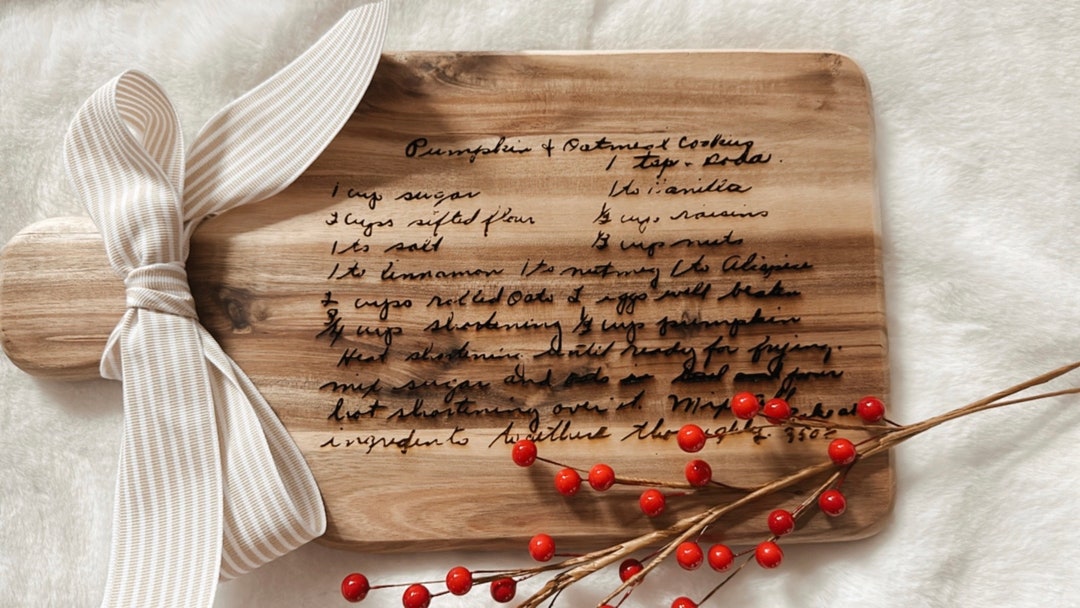 Pumpkin + Oatmeal Cooking
1 tsp. soda.
1 cup sugar
1 ts vanilla
2 cups sifted flour
1/2 cup raisins
1 ts salt
1/2 cup nuts
1 ts Cinnamon 1 ts nutmeg 1 ts Allspice
2 cups rolled Oats 2 eggs well beaten
3/4 cup shortening cup pumpkin
Heat shortening until ready for frying.
mix sugar and oats in bowl and pour
hot shortening over it. Mix
ingredients together thoroughly. 350°